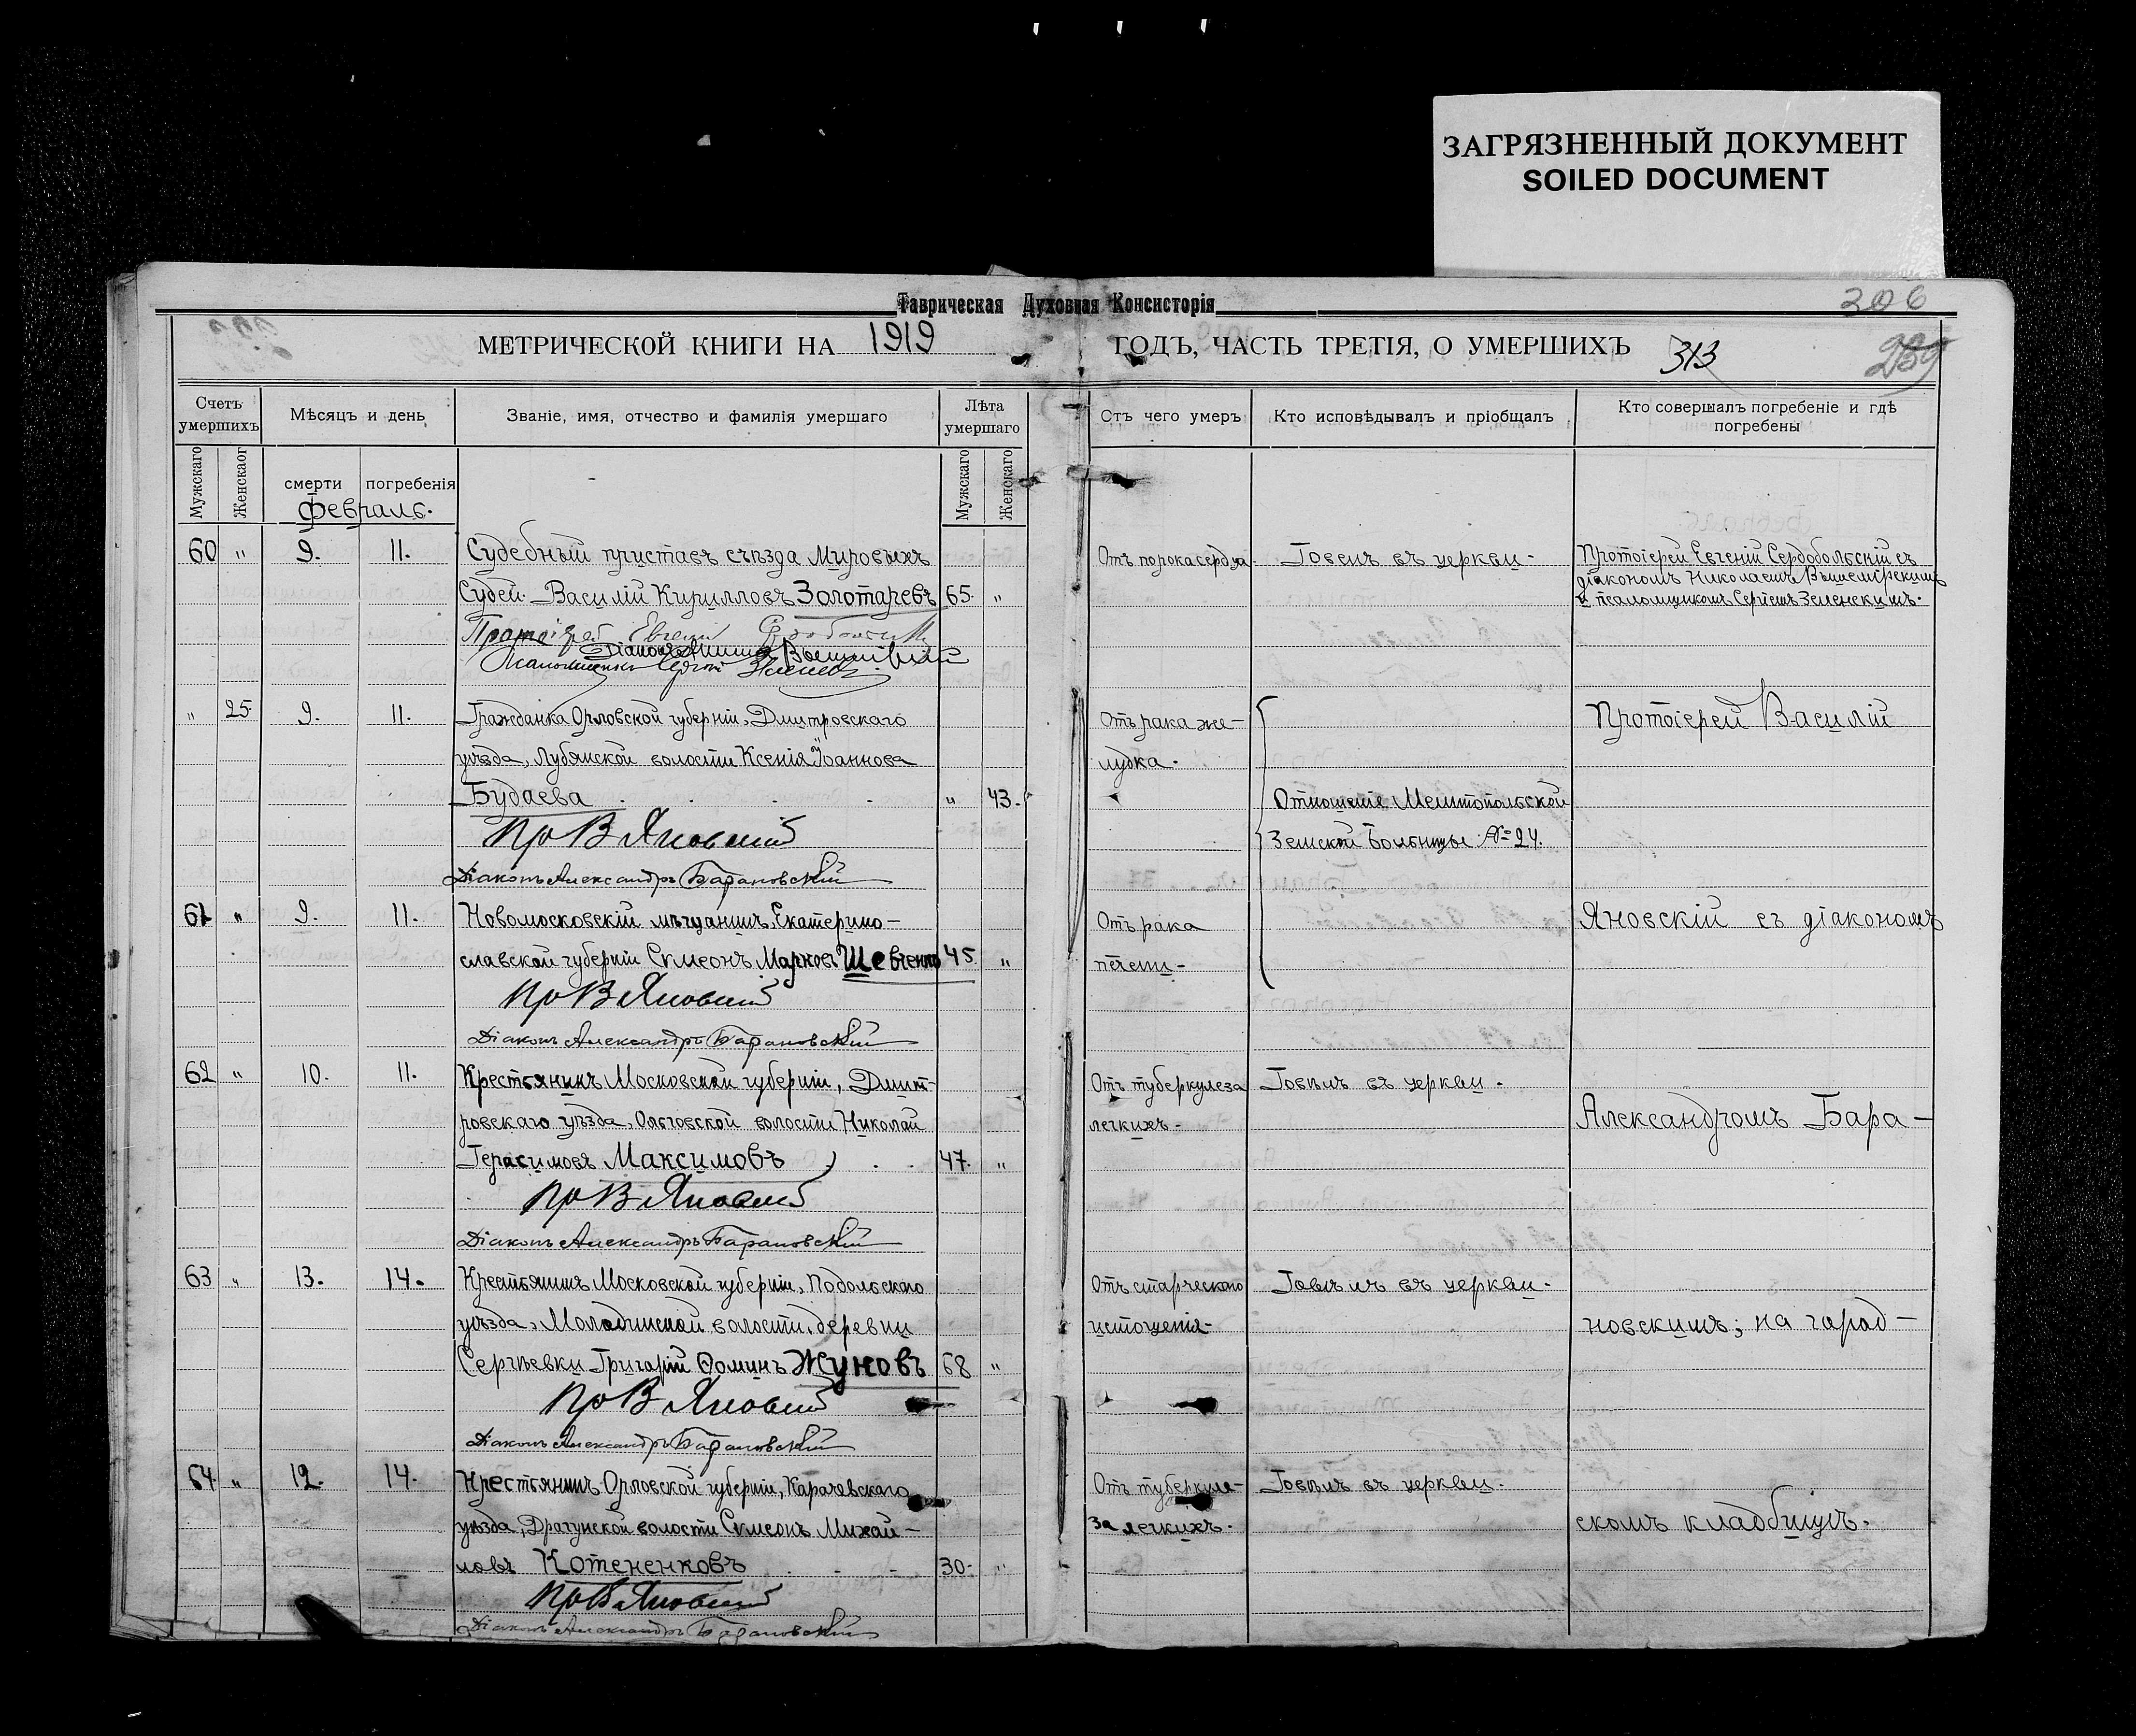 ЗАГРЯЗНЕННЫЙ ДОКУМЕНТ
SOILED DOCUMENT
Таврическая Духовная Консисторія
306
МЕТРИЧЕСКОЙ КНИГИ НА 1919 ГОДЪ, ЧАСТЬ ТРЕТІЯ, О УМЕРШИХЪ 313
Счетъ умершихъ
Мѣсяцъ и день
Званіе, имя, отчество и фамилія умершаго
Лѣта умершаго
Стъ чего умеръ
Кто исповѣдывалъ и пріобщалъ
Кто совершалъ погребеніе и гдѣ погребены
Мужскаго
Женскаог
смерти
погребенія
Мужскаго
Женскаго
Февраль.
60 " 9. 11. Судебный приставъ съѣзда Мировыхъ
Судей Василій Кирилловъ Золотаревъ 65. "
Отъ порока сердца. Говелъ въ церкви-
Протоіерей Евгеній Сердобольскій съ
діакономъ Николаемъ
и псаломщикомъ Сергіемъ Зеленскимъ.
Протоіерей Евгеній Сердобольскій
Псаломщикъ Сергій
" 25. 9. 11. Гражданка Орловской губерніи, Дмитровскаго
уѣзда, Лубянской волости Ксенія Іоаннова
Будаева " 43.
Отъ рака же-
лудка.
Отношеніе Мелитопольской
Земской Больницы № 24.
Протоіерей Василій
Пр В Яновскій
Діаконъ Александръ Барановскій
61 " 9. 11. Новомосковскій мѣщанинъ, Екатерино-
славской губерніи Сѵмеонъ Марковъ Шевченко 45. "
Отъ рака
печени-
Яновскій съ діакономъ
Пр В Яновскій
Діаконъ Александръ Барановскій
62 " 10. 11. Крестьянинъ Московской губерніи, Дмит-
ровскаго уѣзда, Ольговской волости Николай
Герасимовъ Максимовъ 47. "
Отъ туберкулеза
легкихъ-
Говѣлъ въ церкви.
Александромъ Бара-
Пр В Яновскій
Діаконъ Александръ Барановскій
63 " 13. 14. Крестьянинъ Московской губерніи, Подольскаго
уѣзда, Молодинской волости, деревни
Сергѣевки Григорій Ѳоминъ Жуновъ 68 "
Отъ старческаго
истощенія-
Говѣлъ въ церкви-
новскимъ; на город-
Пр В Яновскій
Діаконъ Александръ Барановскій
64 " 12. 14. Крестьянинъ Орловской губерніи, Карачевскаго
уѣзда, Драгунской волости Сѵмеонъ Михай-
ловъ Котененковъ 30. "
Отъ туберкуле-
за легкихъ.
Говѣлъ въ церкви.
скомъ кладбищѣ.
Пр В Яновскій
Діаконъ Александръ Барановскій